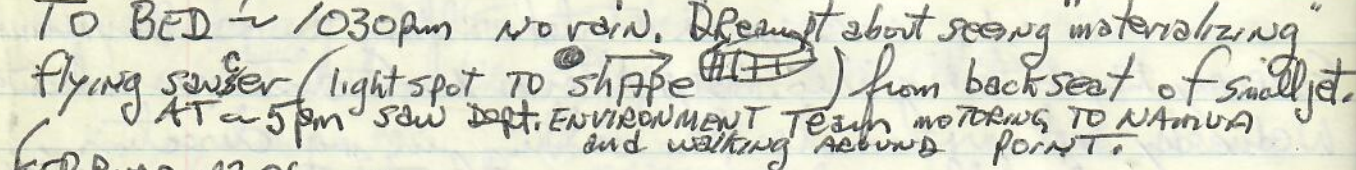 TO BED ~ 1030pm No rain. DReampt about seeing "materializing"
flying saucer (light spot TO shApe ) from back seat of small jet.
AT ~ 5pm saw Dept. ENVIRONMENT Team moTORING TO NAMUA
and walking AROUND POINT.